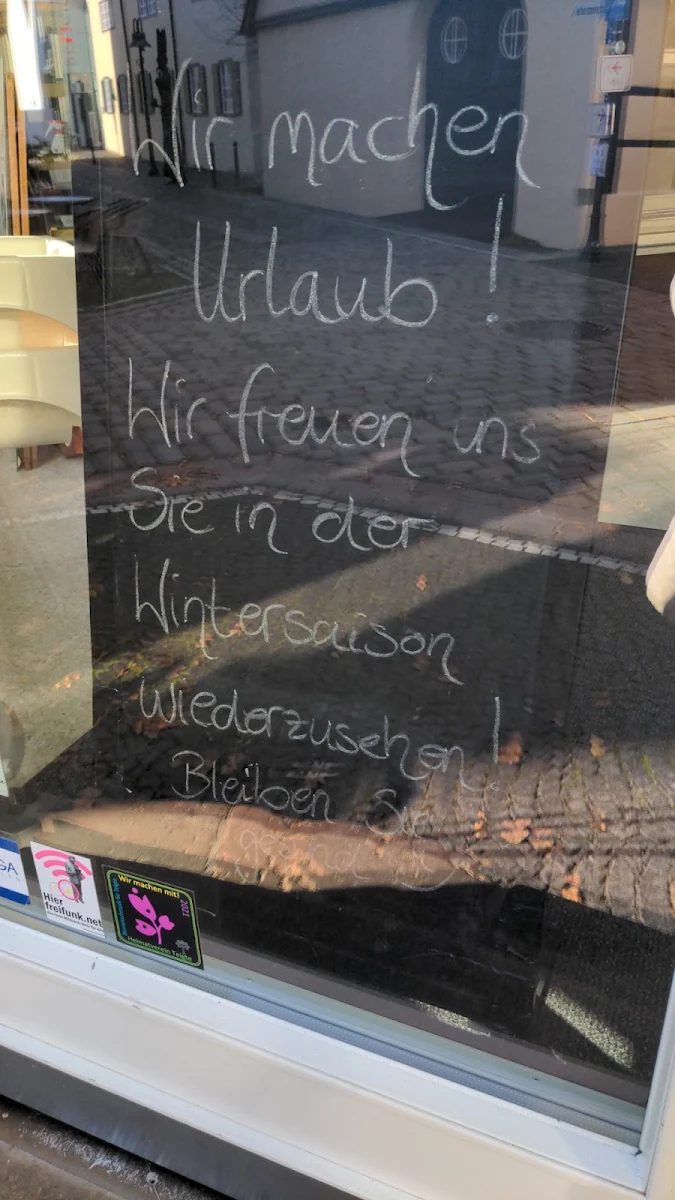 Wir machen
Urlaub!
Wir freuen uns
Sie in der
Wintersaison
wiederzusehen!
Bleiben Sie
SA
Hier
freifunk.net
Wir machen mit!
2021
Heimatverein Telgte